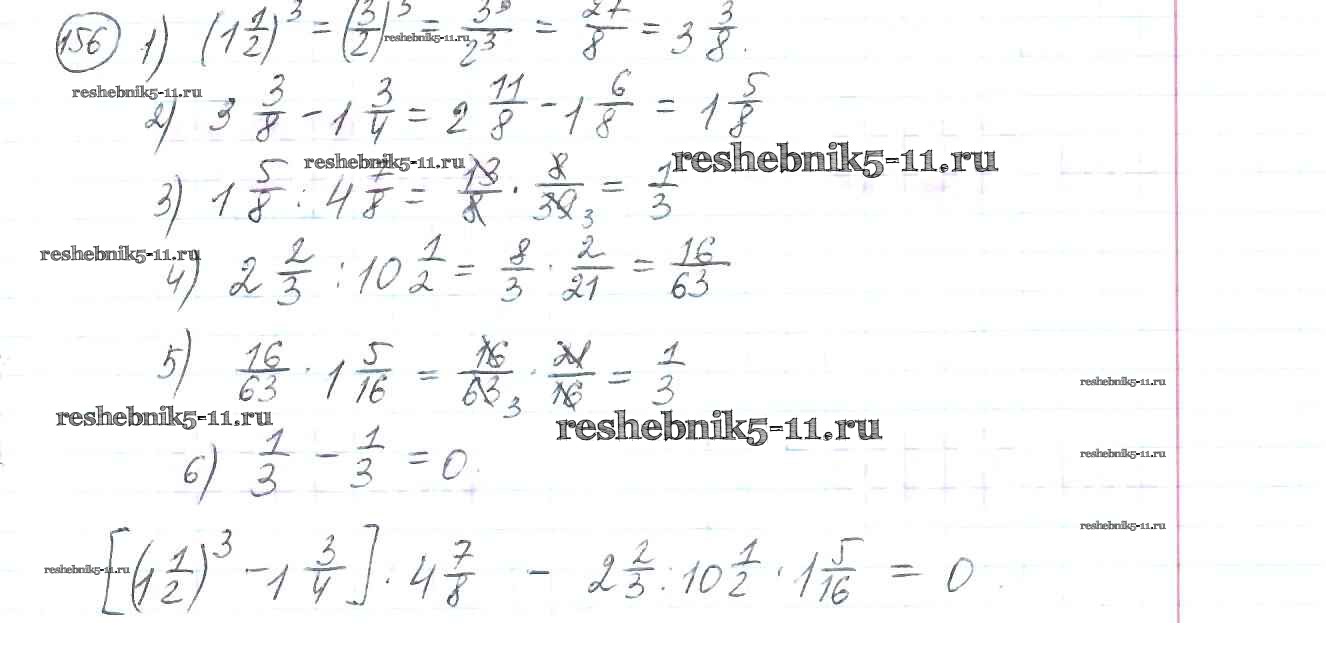 156 1) (1 1/2)³ = (3/2)³ = 3³/2³ = 27/8 = 3 3/8.
reshebnik5-11.ru
reshebnik5-11.ru
2) 3 3/8 - 1 3/4 = 2 11/8 - 1 6/8 = 1 5/8
reshebnik5-11.ru
reshebnik5-11.ru
3) 1 5/8 : 4 7/8 = 13/8 · 8/39 3 = 1/3
reshebnik5-11.ru
4) 2 2/3 : 10 1/2 = 8/3 · 2/21 = 16/63
5) 16/63 · 1 5/16 = 16/63 3 · 21/16 = 1/3
reshebnik5-11.ru
reshebnik5-11.ru
reshebnik5-11.ru
6) 1/3 - 1/3 = 0.
reshebnik5-11.ru
reshebnik5-11.ru
[(1 1/2)³ - 1 3/4] · 4 7/8 - 2 2/3 : 10 1/2 · 1 5/16 = 0.
reshebnik5-11.ru